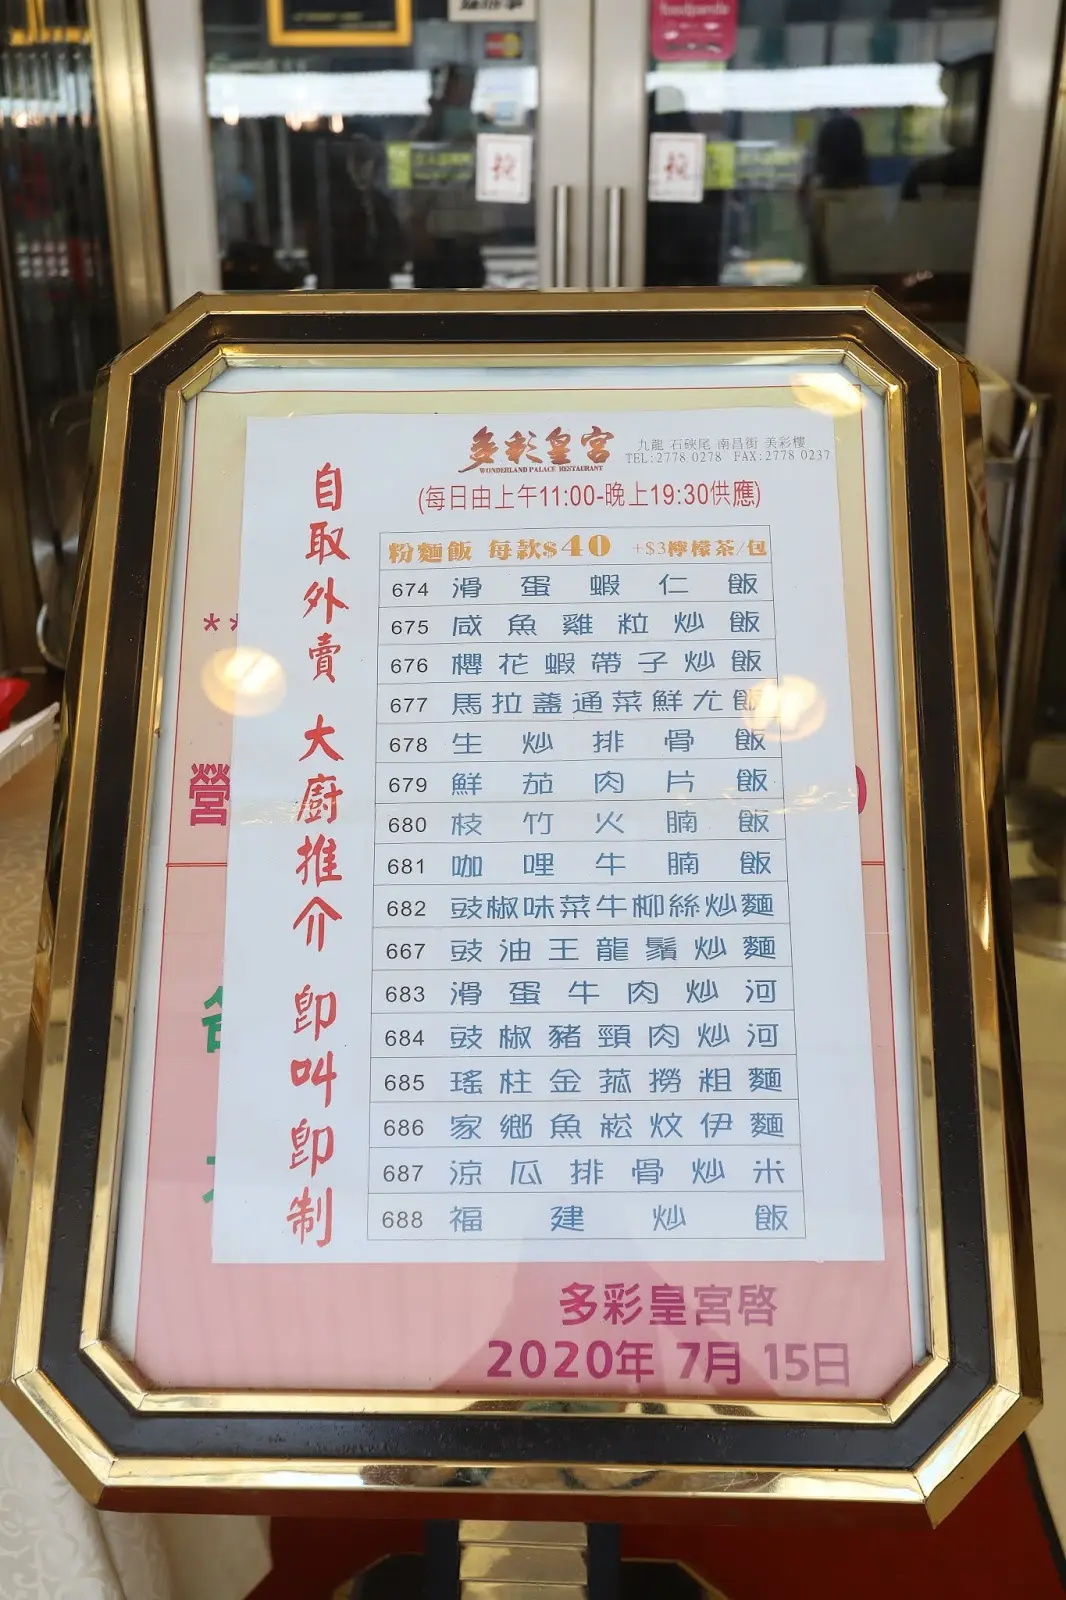 foodpanda
多彩皇宮
WONDERLAND PALACE RESTAURANT
九龍 石硤尾 南昌街 美彩樓
TEL:2778 0278 FAX:2778 0237
(每日由上午11:00-晚上19:30供應)
自取外賣 大廚推介 即叫即制
粉麵飯 每款$40 +$3檸檬茶/包
674 滑蛋蝦仁飯
675 咸魚雞粒炒飯
676 櫻花蝦帶子炒飯
677 馬拉盞通菜鮮尤飯
678 生炒排骨飯
679 鮮茄肉片飯
680 枝竹火腩飯
681 咖哩牛腩飯
682 豉椒味菜牛柳絲炒麵
667 豉油王龍鬚炒麵
683 滑蛋牛肉炒河
684 豉椒豬頸肉炒河
685 瑤柱金菰撈粗麵
686 家鄉魚崧炆伊麵
687 涼瓜排骨炒米
688 福建炒飯
**
營
多彩皇宮啓
2020年 7月 15日